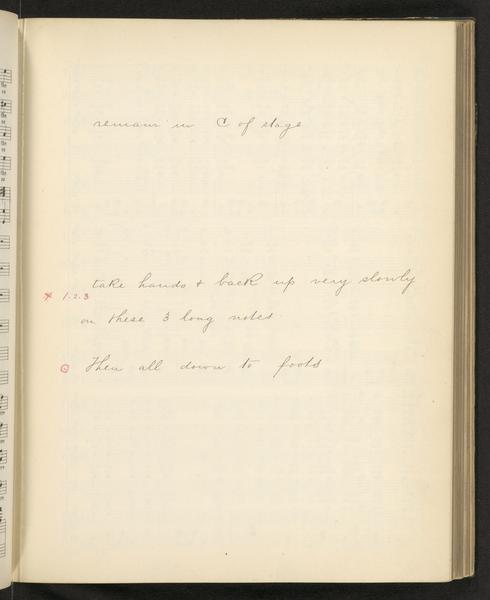 remain in C of stage
take hands & back up very slowly
x 1.2.3
on these 3 long notes.
Then all down to foots